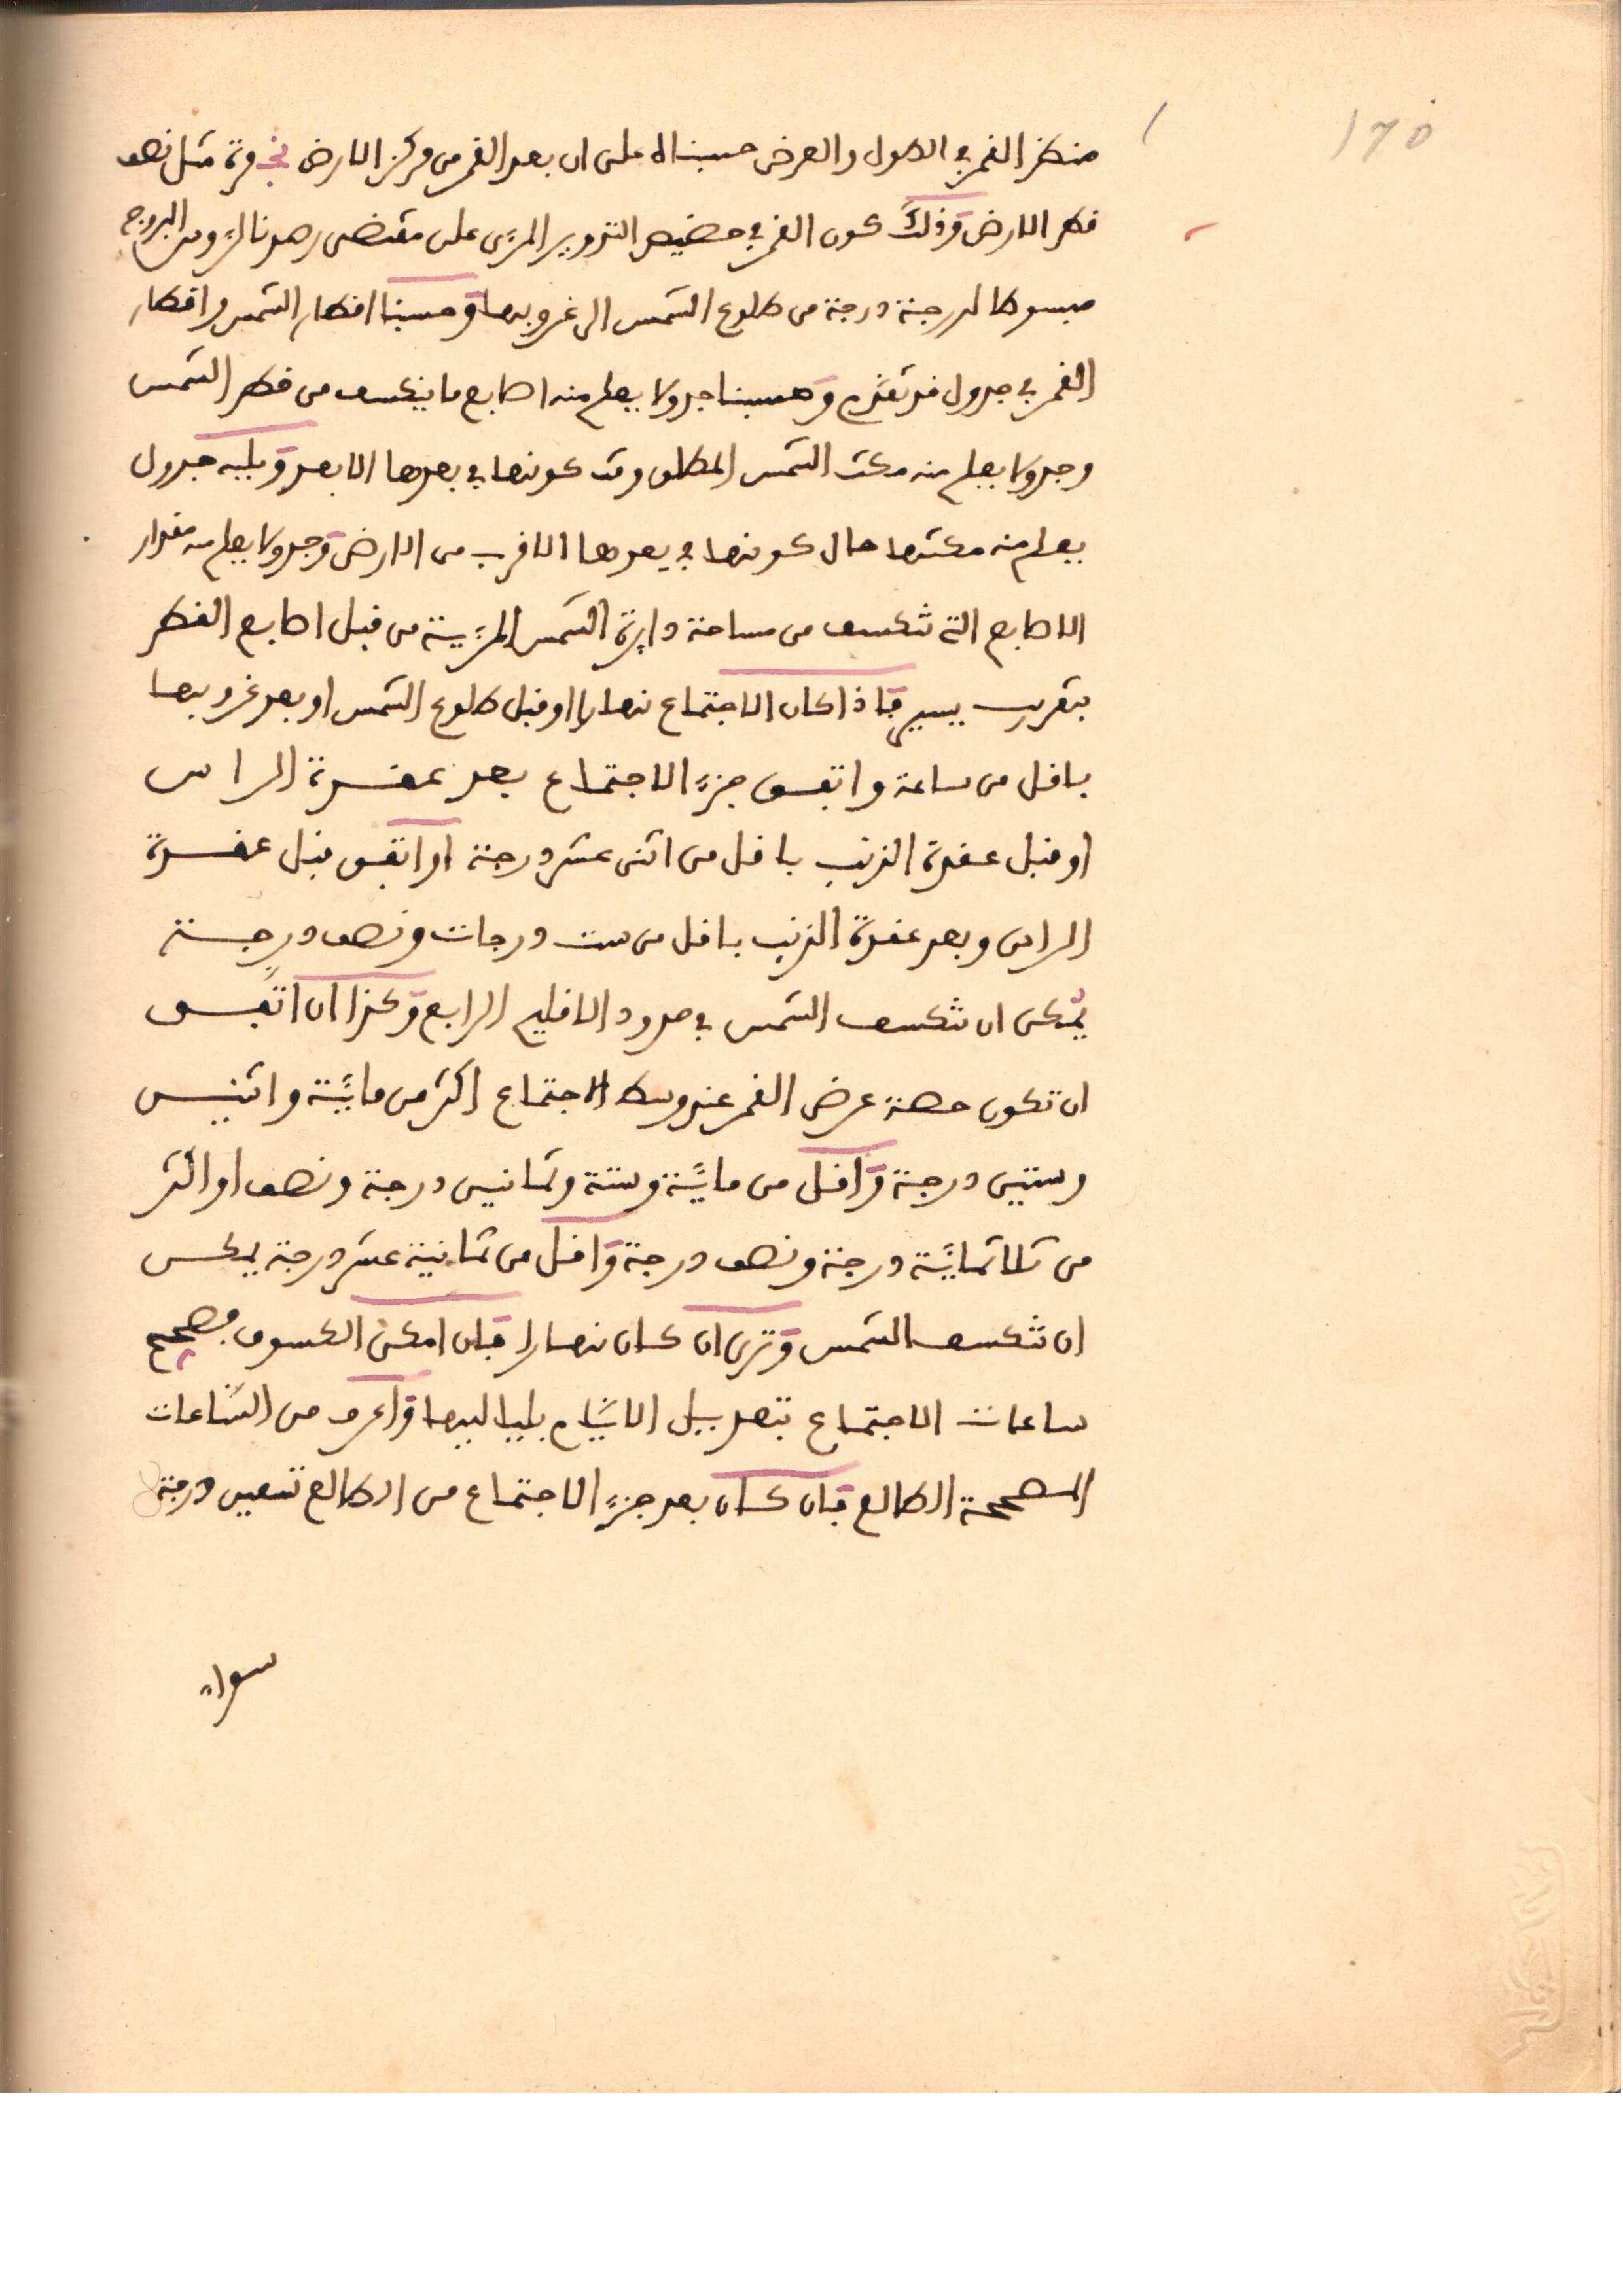 ١٦٥
منظر القمر في الطول والعرض حسبناه على ان بعد القمر من مركز الارض نجـ مرة مثل نصف
قطر الارض وذلك كون القمر في حضيض التدوير المرءى على مقتضى رصدنا لزومه البروج
مبسوطا لدرجة درجة من طلوع الشمس الى غروبها وحسبنا اقطار الشمس واقطار
القمر في جدول قد تقدم وحسبنا جدولا يعلم منه اصابع ما ينكسف من قطر الشمس
وجدولا يعلم منه مكث الشمس المطلق وقت كونها في بعدها الابعد ويليه جدول
يعلم منه مكثها حال كونها في بعدها الاقرب من الارض وجدولا يعلم منه مقدار
الاصابع التي تنكسف من مساحة دايرة الشمس المرءية من قبل اصابع القطر
بتقريب يسير فاذا كان الاجتماع نهارا او قبل طلوع الشمس او بعد غروبها
باقل من ساعة واتفق جزء الاجتماع بعد عقدة الراس
او قبل عقدة الذنب باقل من اثنى عشر درجة او اتفق قبل عقدة
الراس وبعد عقدة الذنب باقل من ست درجات ونصف درجة
يمكن ان تنكسف الشمس في حدود الاقليم الرابع وكذا ان اتفق
ان تكون حصة عرض القمر عند وسط الاجتماع اكثر من ماية واثنين
وستين درجة واقل من ماية وستة وثمانين درجة ونصف او اكثر
من ثلاثماية درجة ونصف درجة واقل من ثمانية عشر درجة يمكن
ان تنكسف الشمس وترى ان كان نهارا فان امكن الكسوف فصحح
ساعات الاجتماع بتعديل الايام بلياليها واعرف من الساعات
المصححة الطالع فان كان بعد جزء الاجتماع من الطالع تسعين درجة
سواء